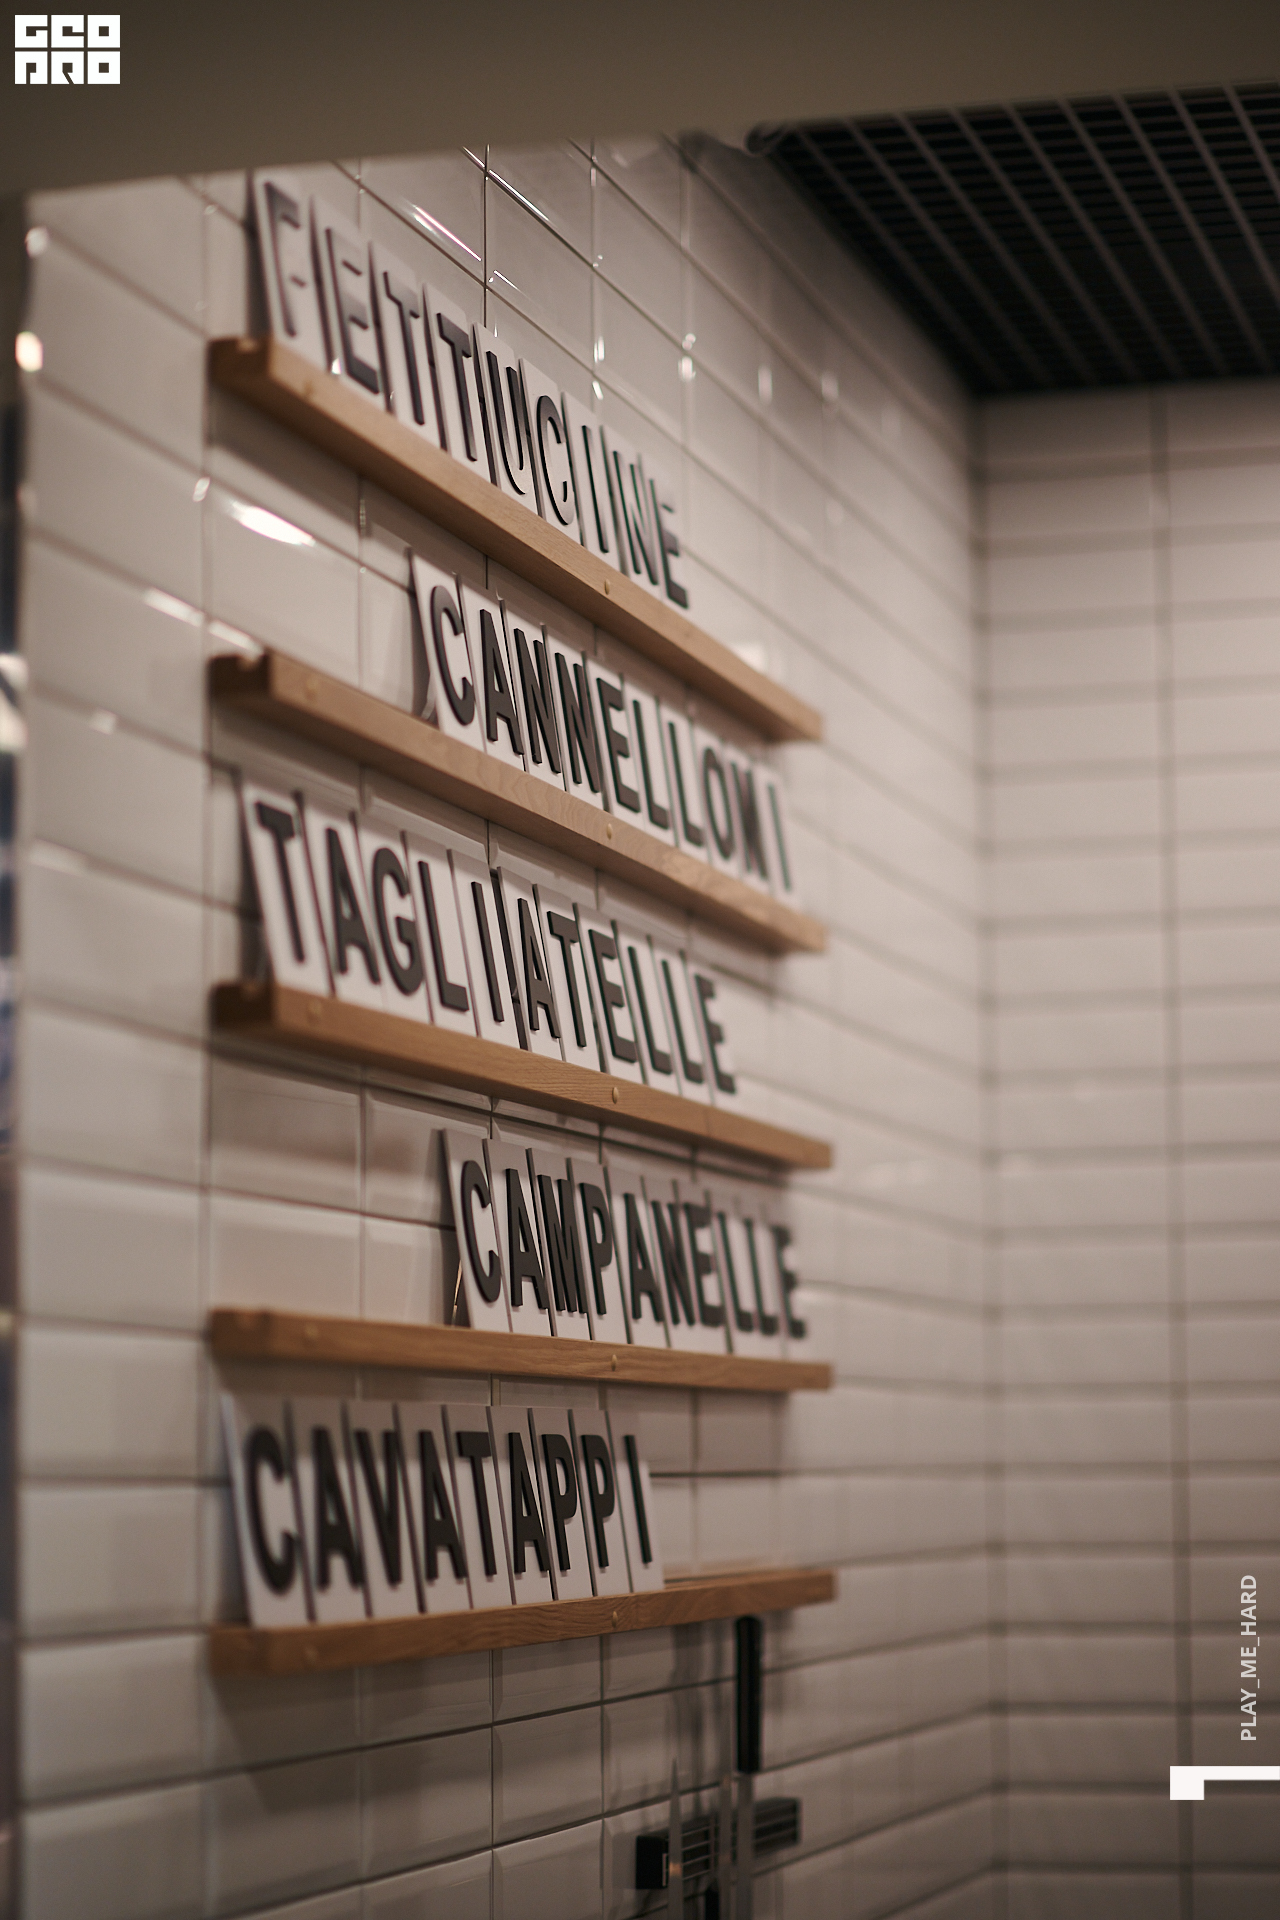 GEO
PRO
FETTUCINE
CANNELLONI
TAGLIATELLE
CAMPANELLE
CAVATAPPI
PLAY_ME_HARD